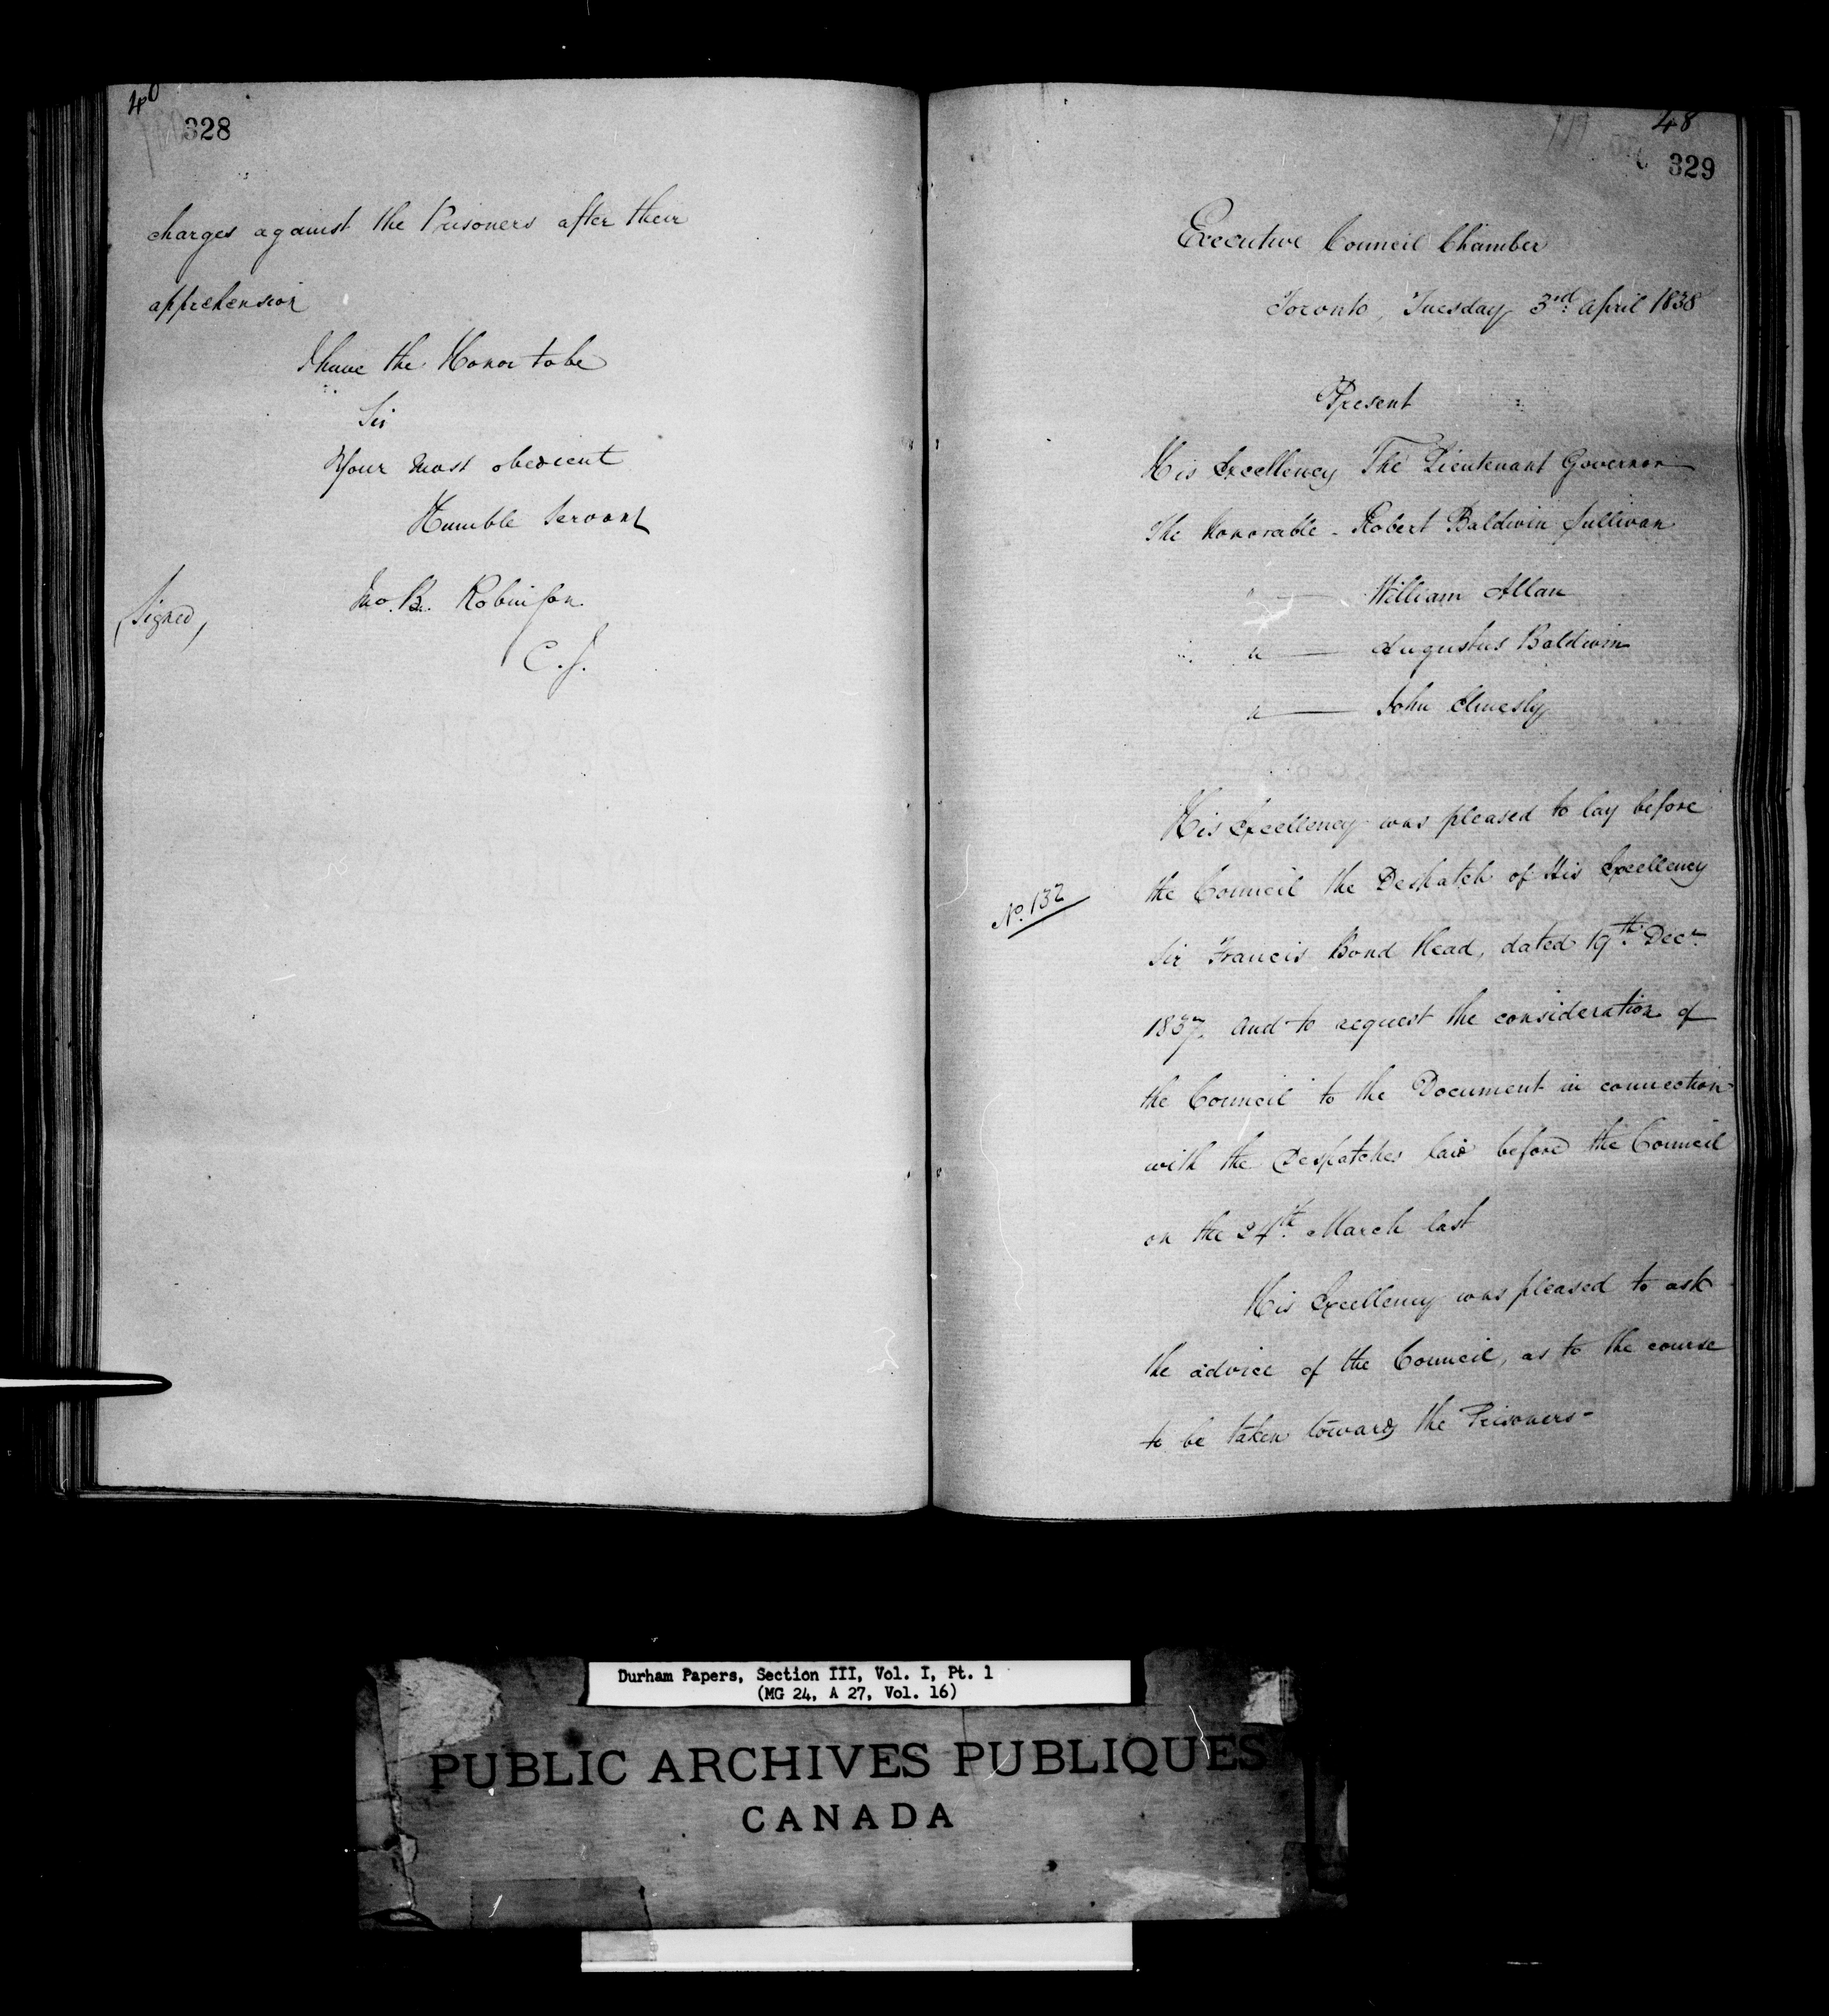 40
328
charges against the Prisoners after their
apprehension
I have the Honor to be
Sir
Your most obedient
Humble Servant
(Signed,
Jno. B. Robinson
C. J.
48
329
Executive Council Chamber
Toronto, Tuesday 3rd April 1838
Present
His Excellency The Lieutenant Governor
The Honorable - Robert Baldwin Sullivan
" — William Allan
" — Augustus Baldwin
" — John Elmesly
His Excellency was pleased to lay before
the Council the Despatch of His Excellency
No. 132
Sir Francis Bond Head, dated 19th Decr
1837. and to request the consideration of
the Council to the Document in connection
with the Despatches laid before the Council
on the 24th March last
His Excellency was pleased to ask
the advice of the Council, as to the course
to be taken towards the Prisoners -
Durham Papers, Section III, Vol. I, Pt. 1
(MG 24, A 27, Vol. 16)
PUBLIC ARCHIVES PUBLIQUES
CANADA